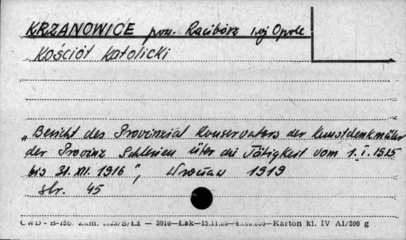 KRZANOWICE pow. Racibórz woj Opole
Kościół katolicki
„Bericht des Provinzial Konservators der Kunstdenkmäler
der Provinz Schlesien über die Tätigkeit vom 1.I.1915
bis 31.XII.1916", Wrocław 1919
str. 45
CWD - B-156. Zam. S/ŁZ — 2010—Łak—15.11.—Karton kl. IV A1/200 g